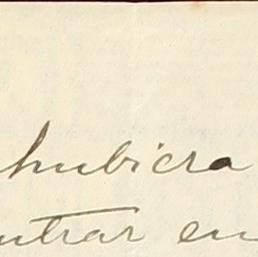 hubiera
entrar en